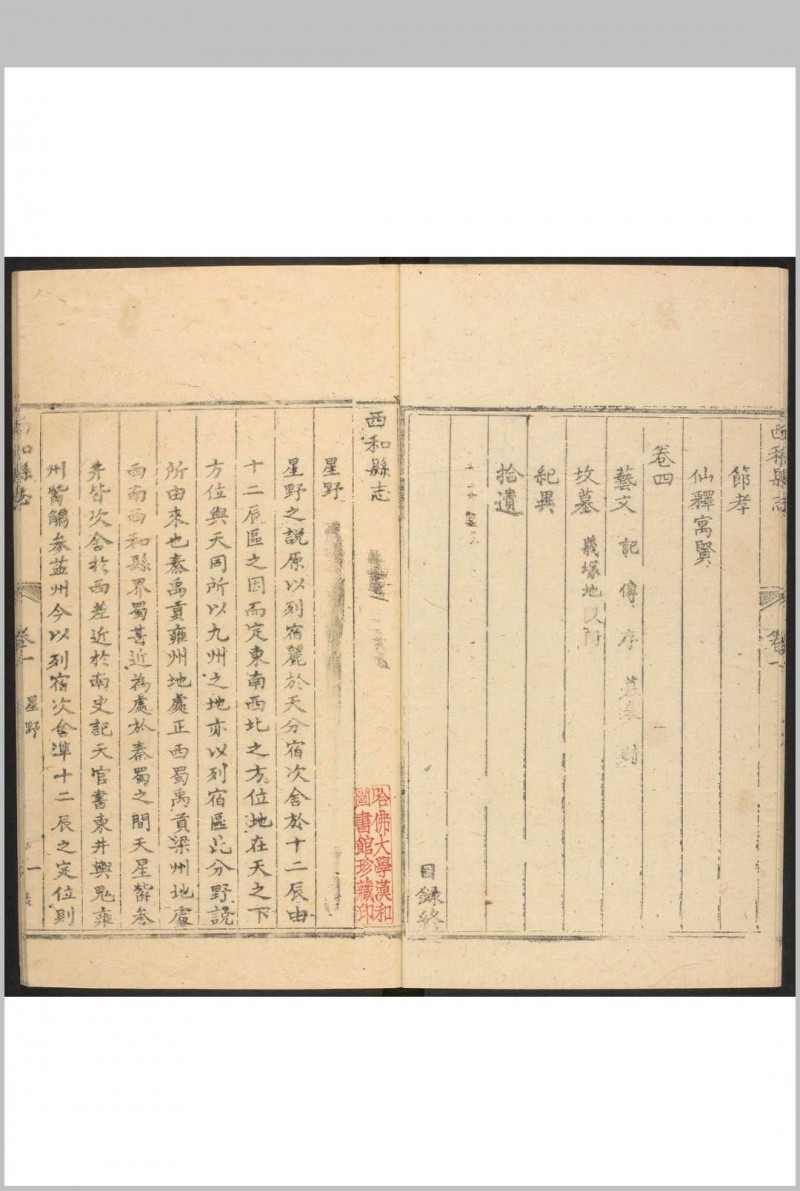 西和縣志
節孝
仙釋寓賢
卷四
藝文 記 傳 序
坟墓 義塚地
紀異
拾遺
目録終
西和縣志
哈佛大學漢和
圖書館珍藏印
星野
星野之說原以列宿麗於天分宿次舍於十二辰由
十二辰區之因而定東南西北之方位地在天之下
方位與天同所以九州之地亦以列宿區此分野說
所由來也秦禹貢雍州地處正西蜀禹貢梁州地處
西南西和縣界蜀甚近為處於秦蜀之間天星觜參
井皆次舍於西差近於南史記天官書東井輿鬼雍
州觜觿參益州今以列宿次舍準十二辰之定位則
和縣志
卷一
星野
一